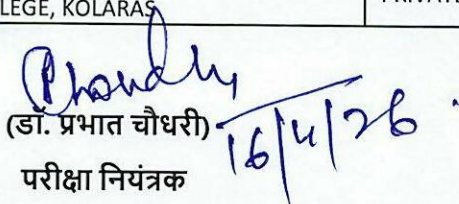 LEGE, KOLARAS
(डॉ. प्रभात चौधरी) 16/4/26
परीक्षा नियंत्रक